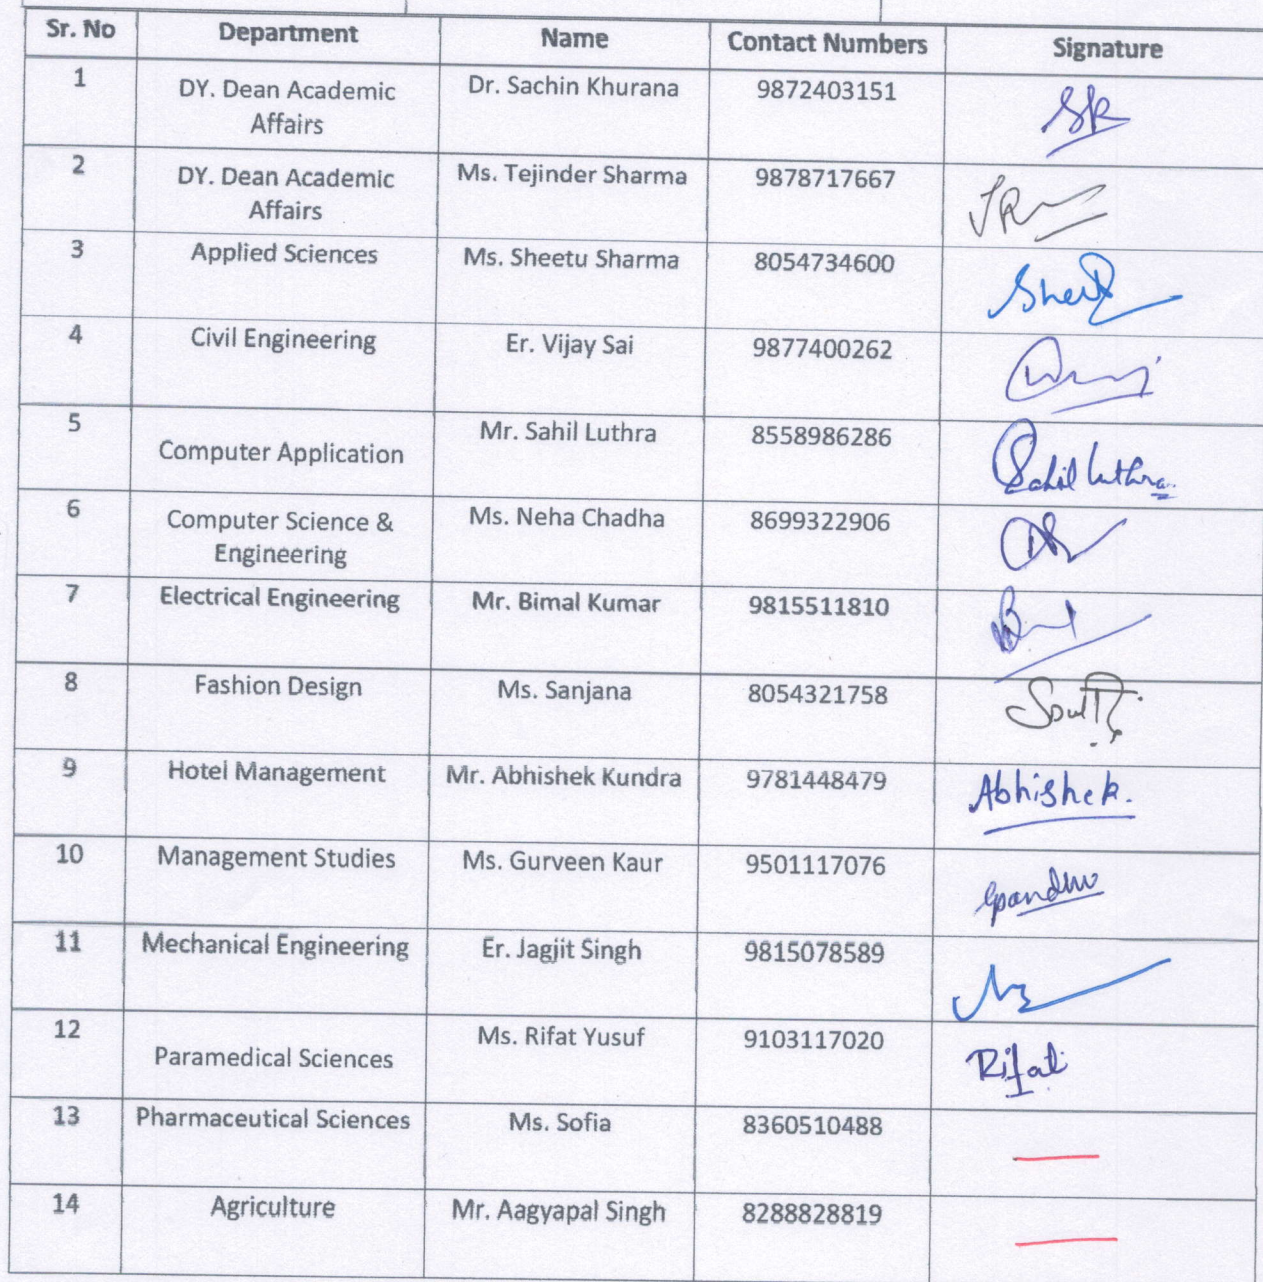 Sr. No Department Name Contact Numbers Signature
1 DY. Dean Academic Dr. Sachin Khurana 9872403151 SK
Affairs
2 DY. Dean Academic Ms. Tejinder Sharma 9878717667
Affairs
3 Applied Sciences Ms. Sheetu Sharma 8054734600
4 Civil Engineering Er. Vijay Sai 9877400262
5 Computer Application Mr. Sahil Luthra 8558986286 Sahil Luthra
6 Computer Science & Ms. Neha Chadha 8699322906
Engineering
7 Electrical Engineering Mr. Bimal Kumar 9815511810
8 Fashion Design Ms. Sanjana 8054321758
9 Hotel Management Mr. Abhishek Kundra 9781448479 Abhishek.
10 Management Studies Ms. Gurveen Kaur 9501117076
11 Mechanical Engineering Er. Jagjit Singh 9815078589
12 Paramedical Sciences Ms. Rifat Yusuf 9103117020 Rifat
13 Pharmaceutical Sciences Ms. Sofia 8360510488
14 Agriculture Mr. Aagyapal Singh 8288828819